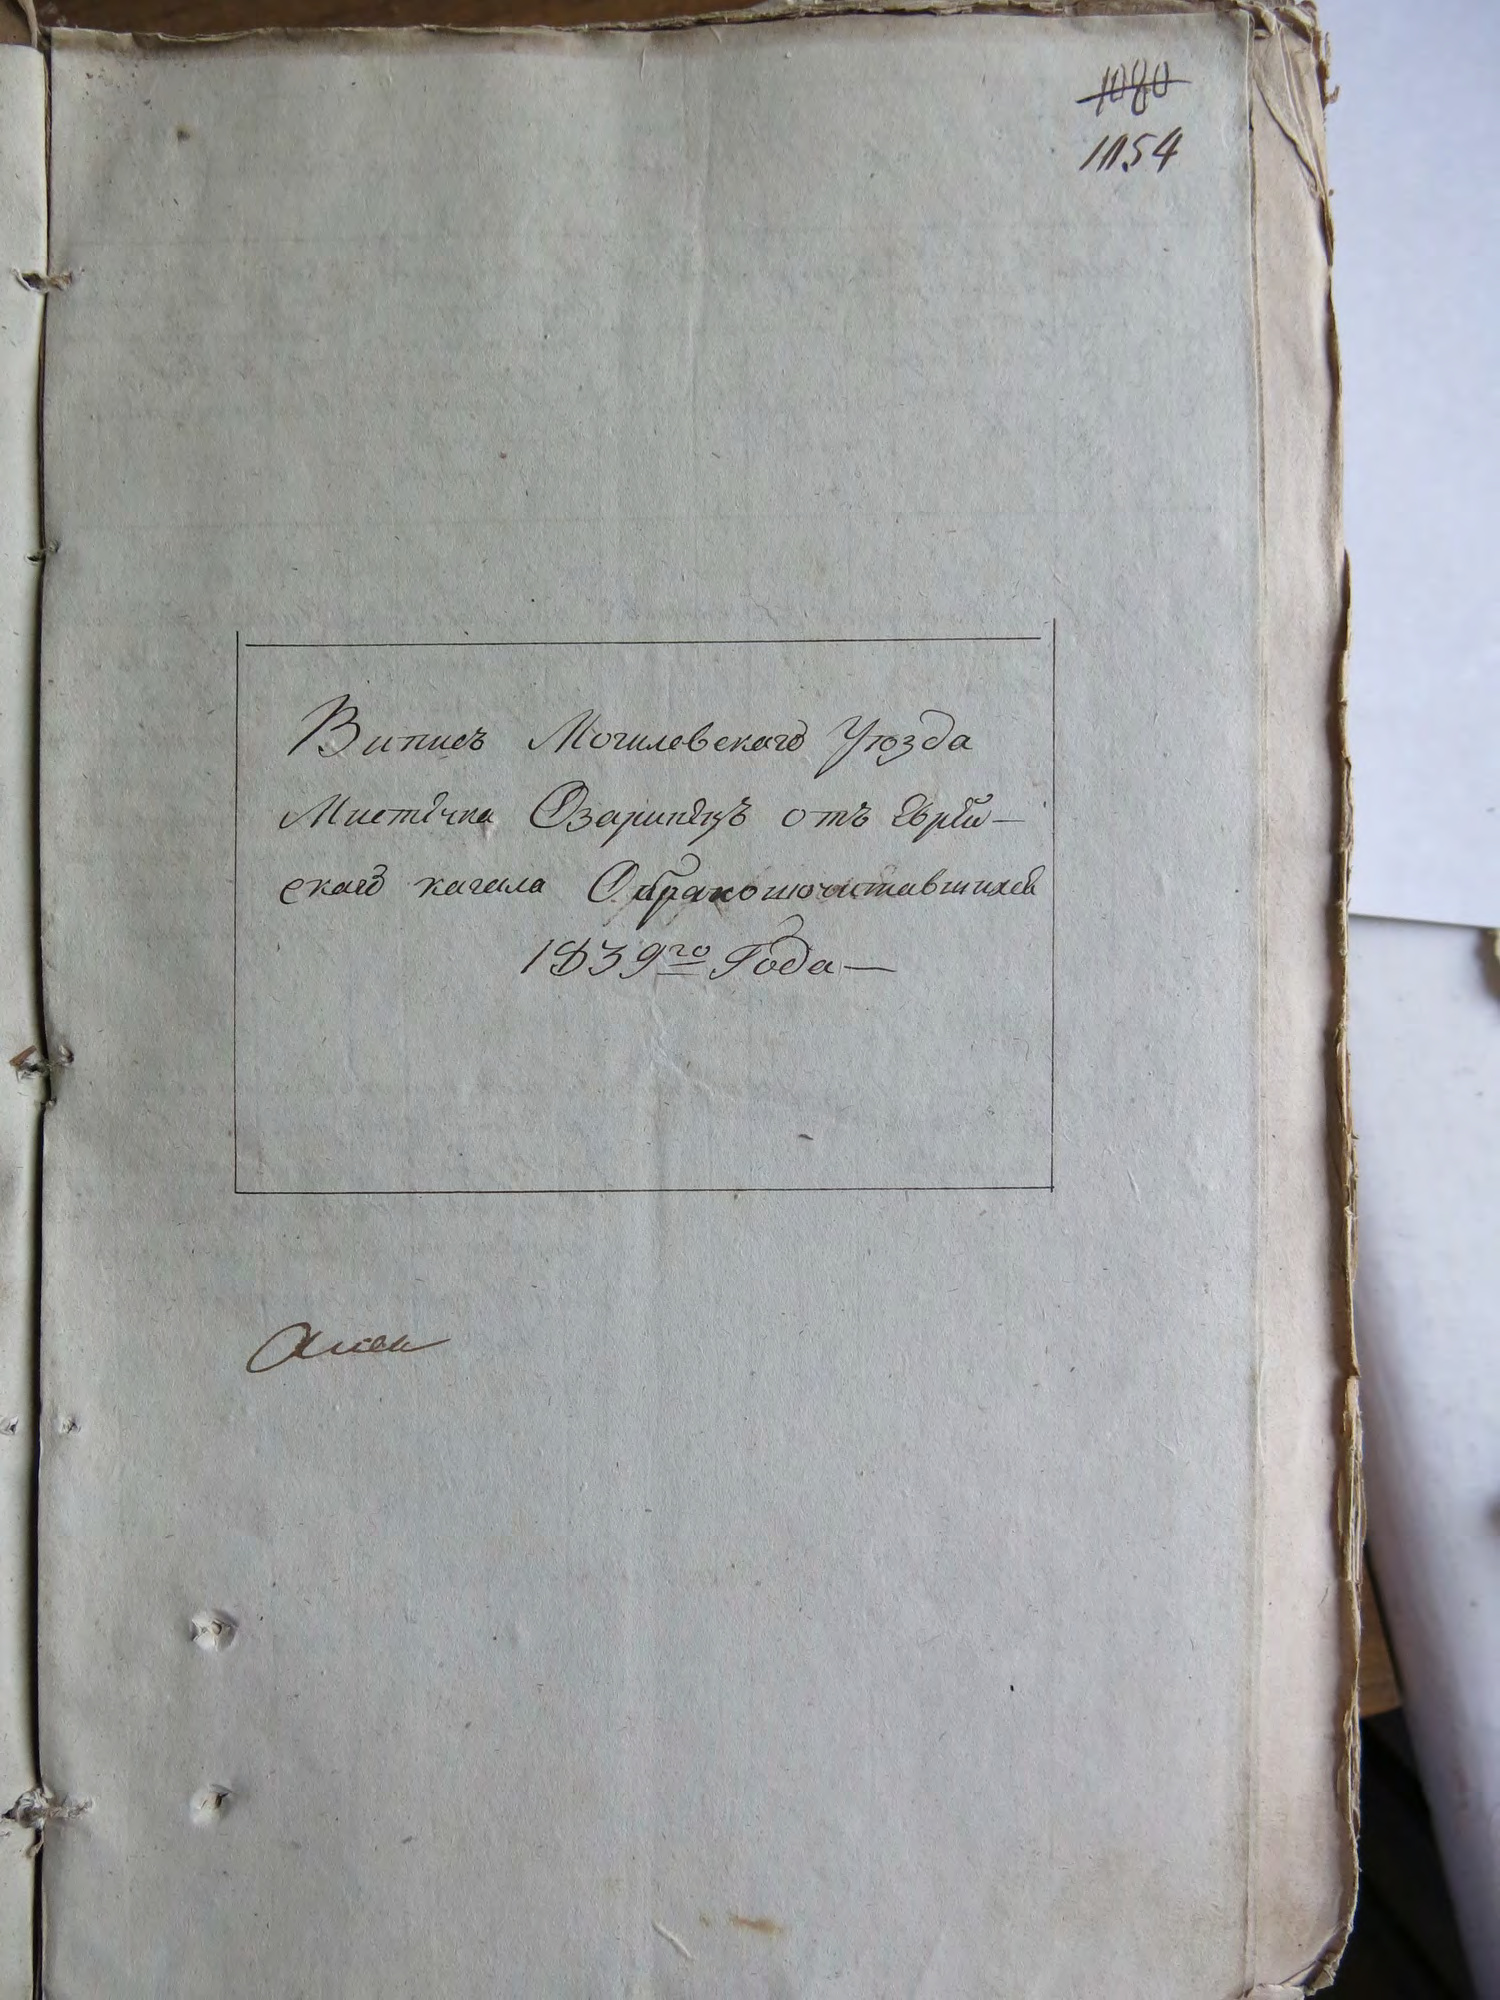 1080
1154
Випись Могилевскаго Уюзда
Мистѣчка Озаринѣцъ отъ Еврѣй—
скаго кагала О бракошочитавшихся
1839го Года—